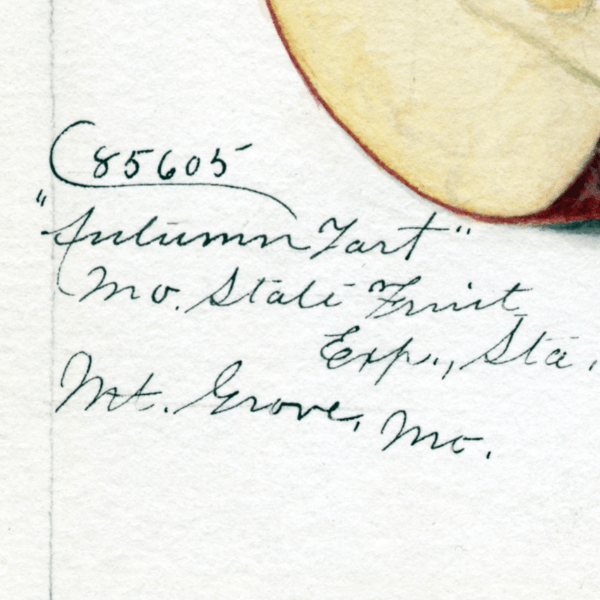 85605
"Autumn Tart"
Mo. State Fruit
Exp., Sta.
Mt. Grove, Mo.